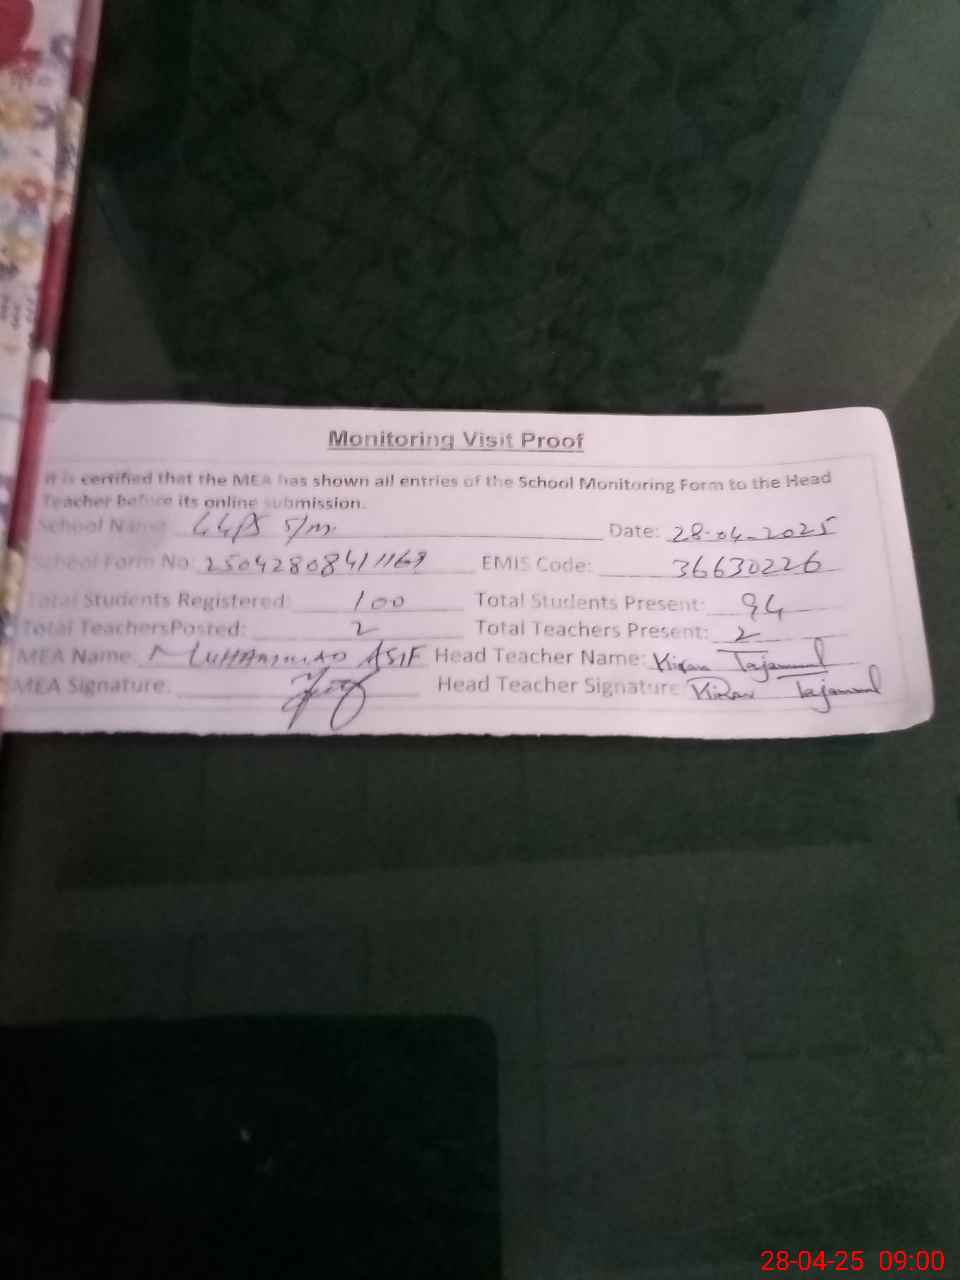 Monitoring Visit Proof
It is certified that the MEA has shown all entries of the School Monitoring Form to the Head
Teacher before its online submission.
School Name: S/M Date: 28-04-2025
School Form No: EMIS Code: 36630226
Total Students Registered: 100 Total Students Present: 94
Total TeachersPosted: 2 Total Teachers Present: 2
MEA Name: MUHAMMAD ASIF Head Teacher Name: Kiran Tajammul
MEA Signature: Head Teacher Signature: Kiran Tajammul
28-04-25 09:00